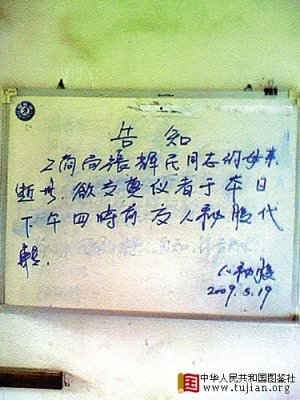 告知
工商局张辉民同志的母亲
逝世.欲去奠仪者于本日
下午四時前交人秘股代
转.
人秘股
2009.5.19
中华人民共和国图鉴社
www.tujian.org